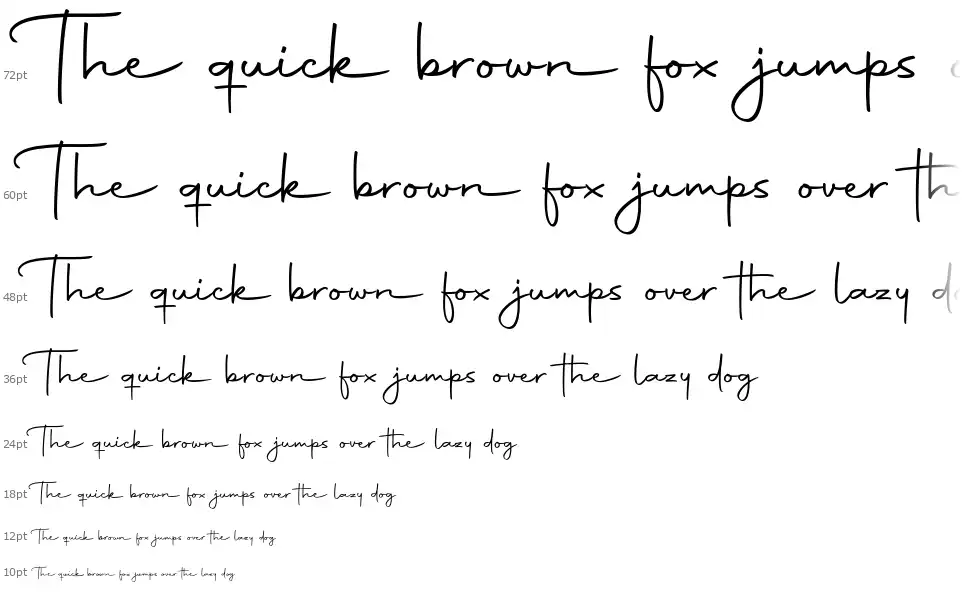 72pt The quick brown fox jumps
60pt The quick brown fox jumps over th
48pt The quick brown fox jumps over the lazy d
36pt The quick brown fox jumps over the lazy dog
24pt The quick brown fox jumps over the lazy dog
18pt The quick brown fox jumps over the lazy dog
12pt The quick brown fox jumps over the lazy dog
10pt The quick brown fox jumps over the lazy dog